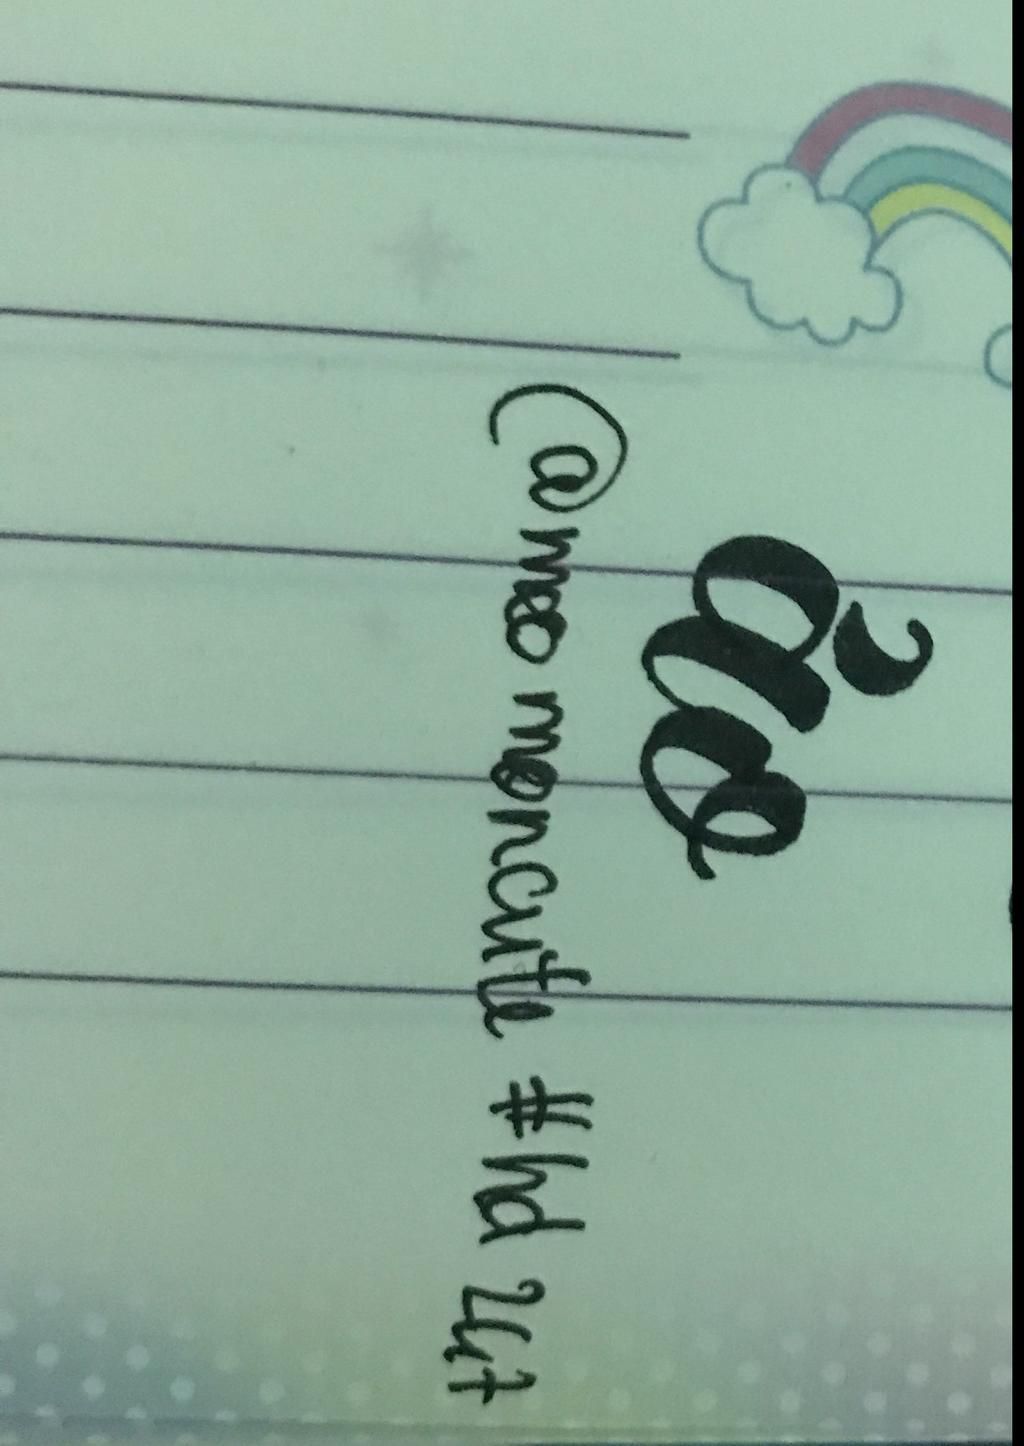 ảo
@meo mencute #hd 247